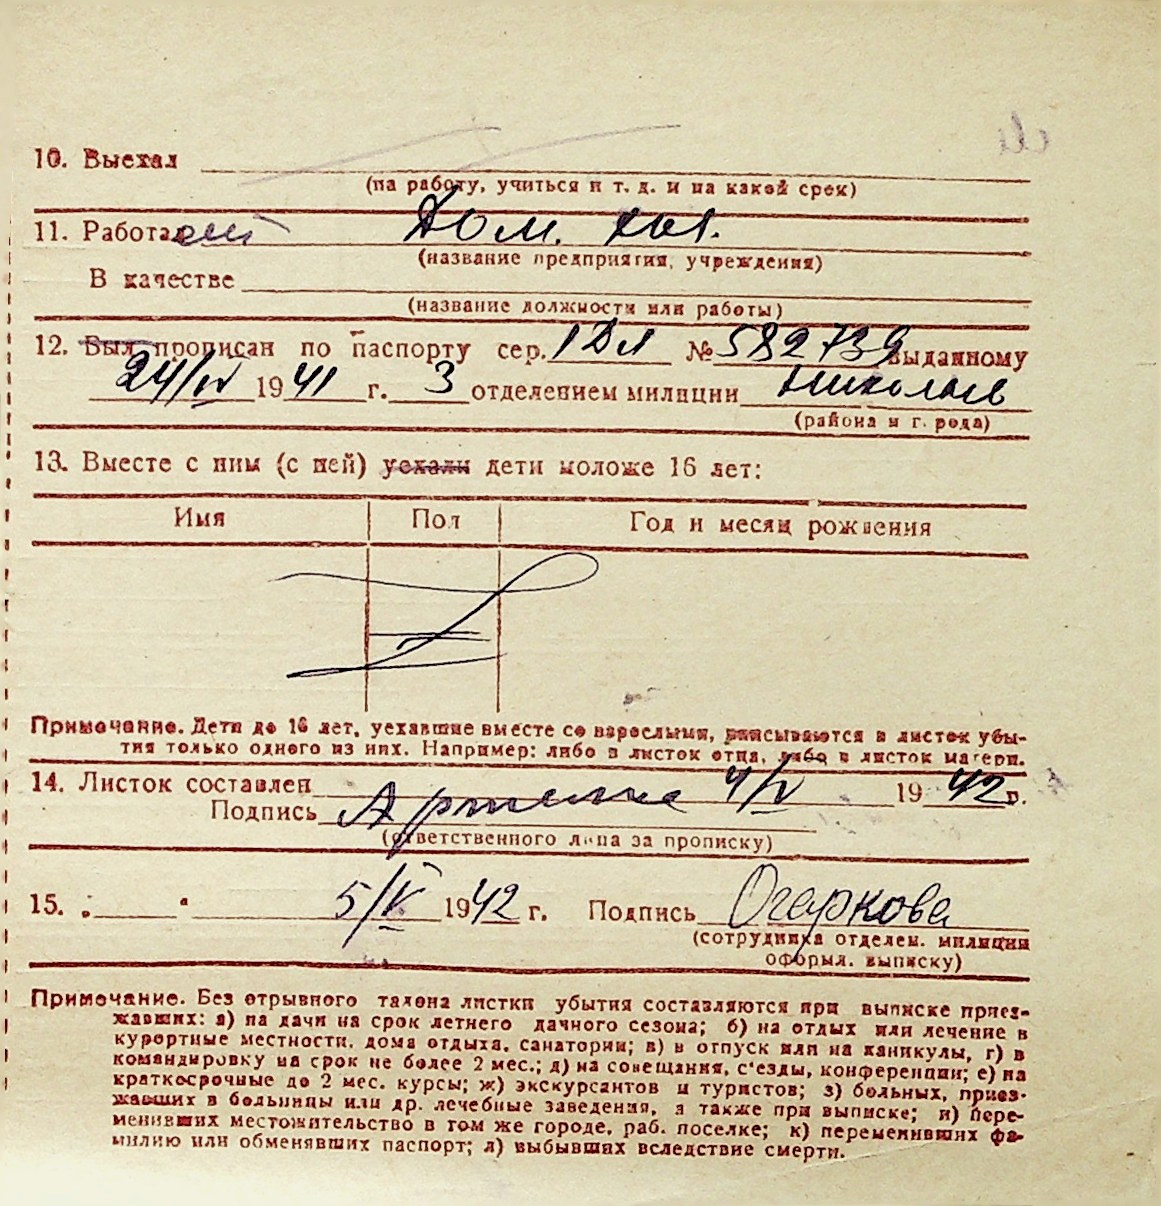 10. Выехал
(на работу, учиться и т. д. и на какой срок)
11. Работает Дом. хоз.
(название предприятия, учреждения)
В качестве
(название должности или работы)
12. Был прописан по паспорту сер. 1 Дл № 582739 выданному
24/IV 1941 г. 3 отделением милиции Николаев
(района и г. рода)
13. Вместе с ним (с ней) уехали дети моложе 16 лет:
Имя Пол Год и месяц рождения
Примечание. Дети до 16 лет, уехавшие вместе со взрослыми, вписываются в листок убы-
тия только одного из них. Например: либо в листок отца, либо в листок матери.
14. Листок составлен 4/V 1942 г.
Подпись
(ответственного лица за прописку)
15. „ “ 5/V 1942 г. Подпись Огаркова
(сотрудника отделен. милиции
оформл. выписку)
Примечание. Без отрывного талона листки убытия составляются при выписке приез-
жавших: а) на дачи на срок летнего дачного сезона; б) на отдых или лечение в
курортные местности, дома отдыха, санатории; в) в отпуск или на каникулы, г) в
командировку на срок не более 2 мес.; д) на совещания, с'езды, конференции; е) на
краткосрочные до 2 мес. курсы; ж) экскурсантов и туристов; з) больных, приез-
жавших в больницы или др. лечебные заведения, а также при выписке; и) пере-
менивших местожительство в том же городе, раб. поселке; к) переменивших фа-
милию или обменявших паспорт; л) выбывших вследствие смерти.